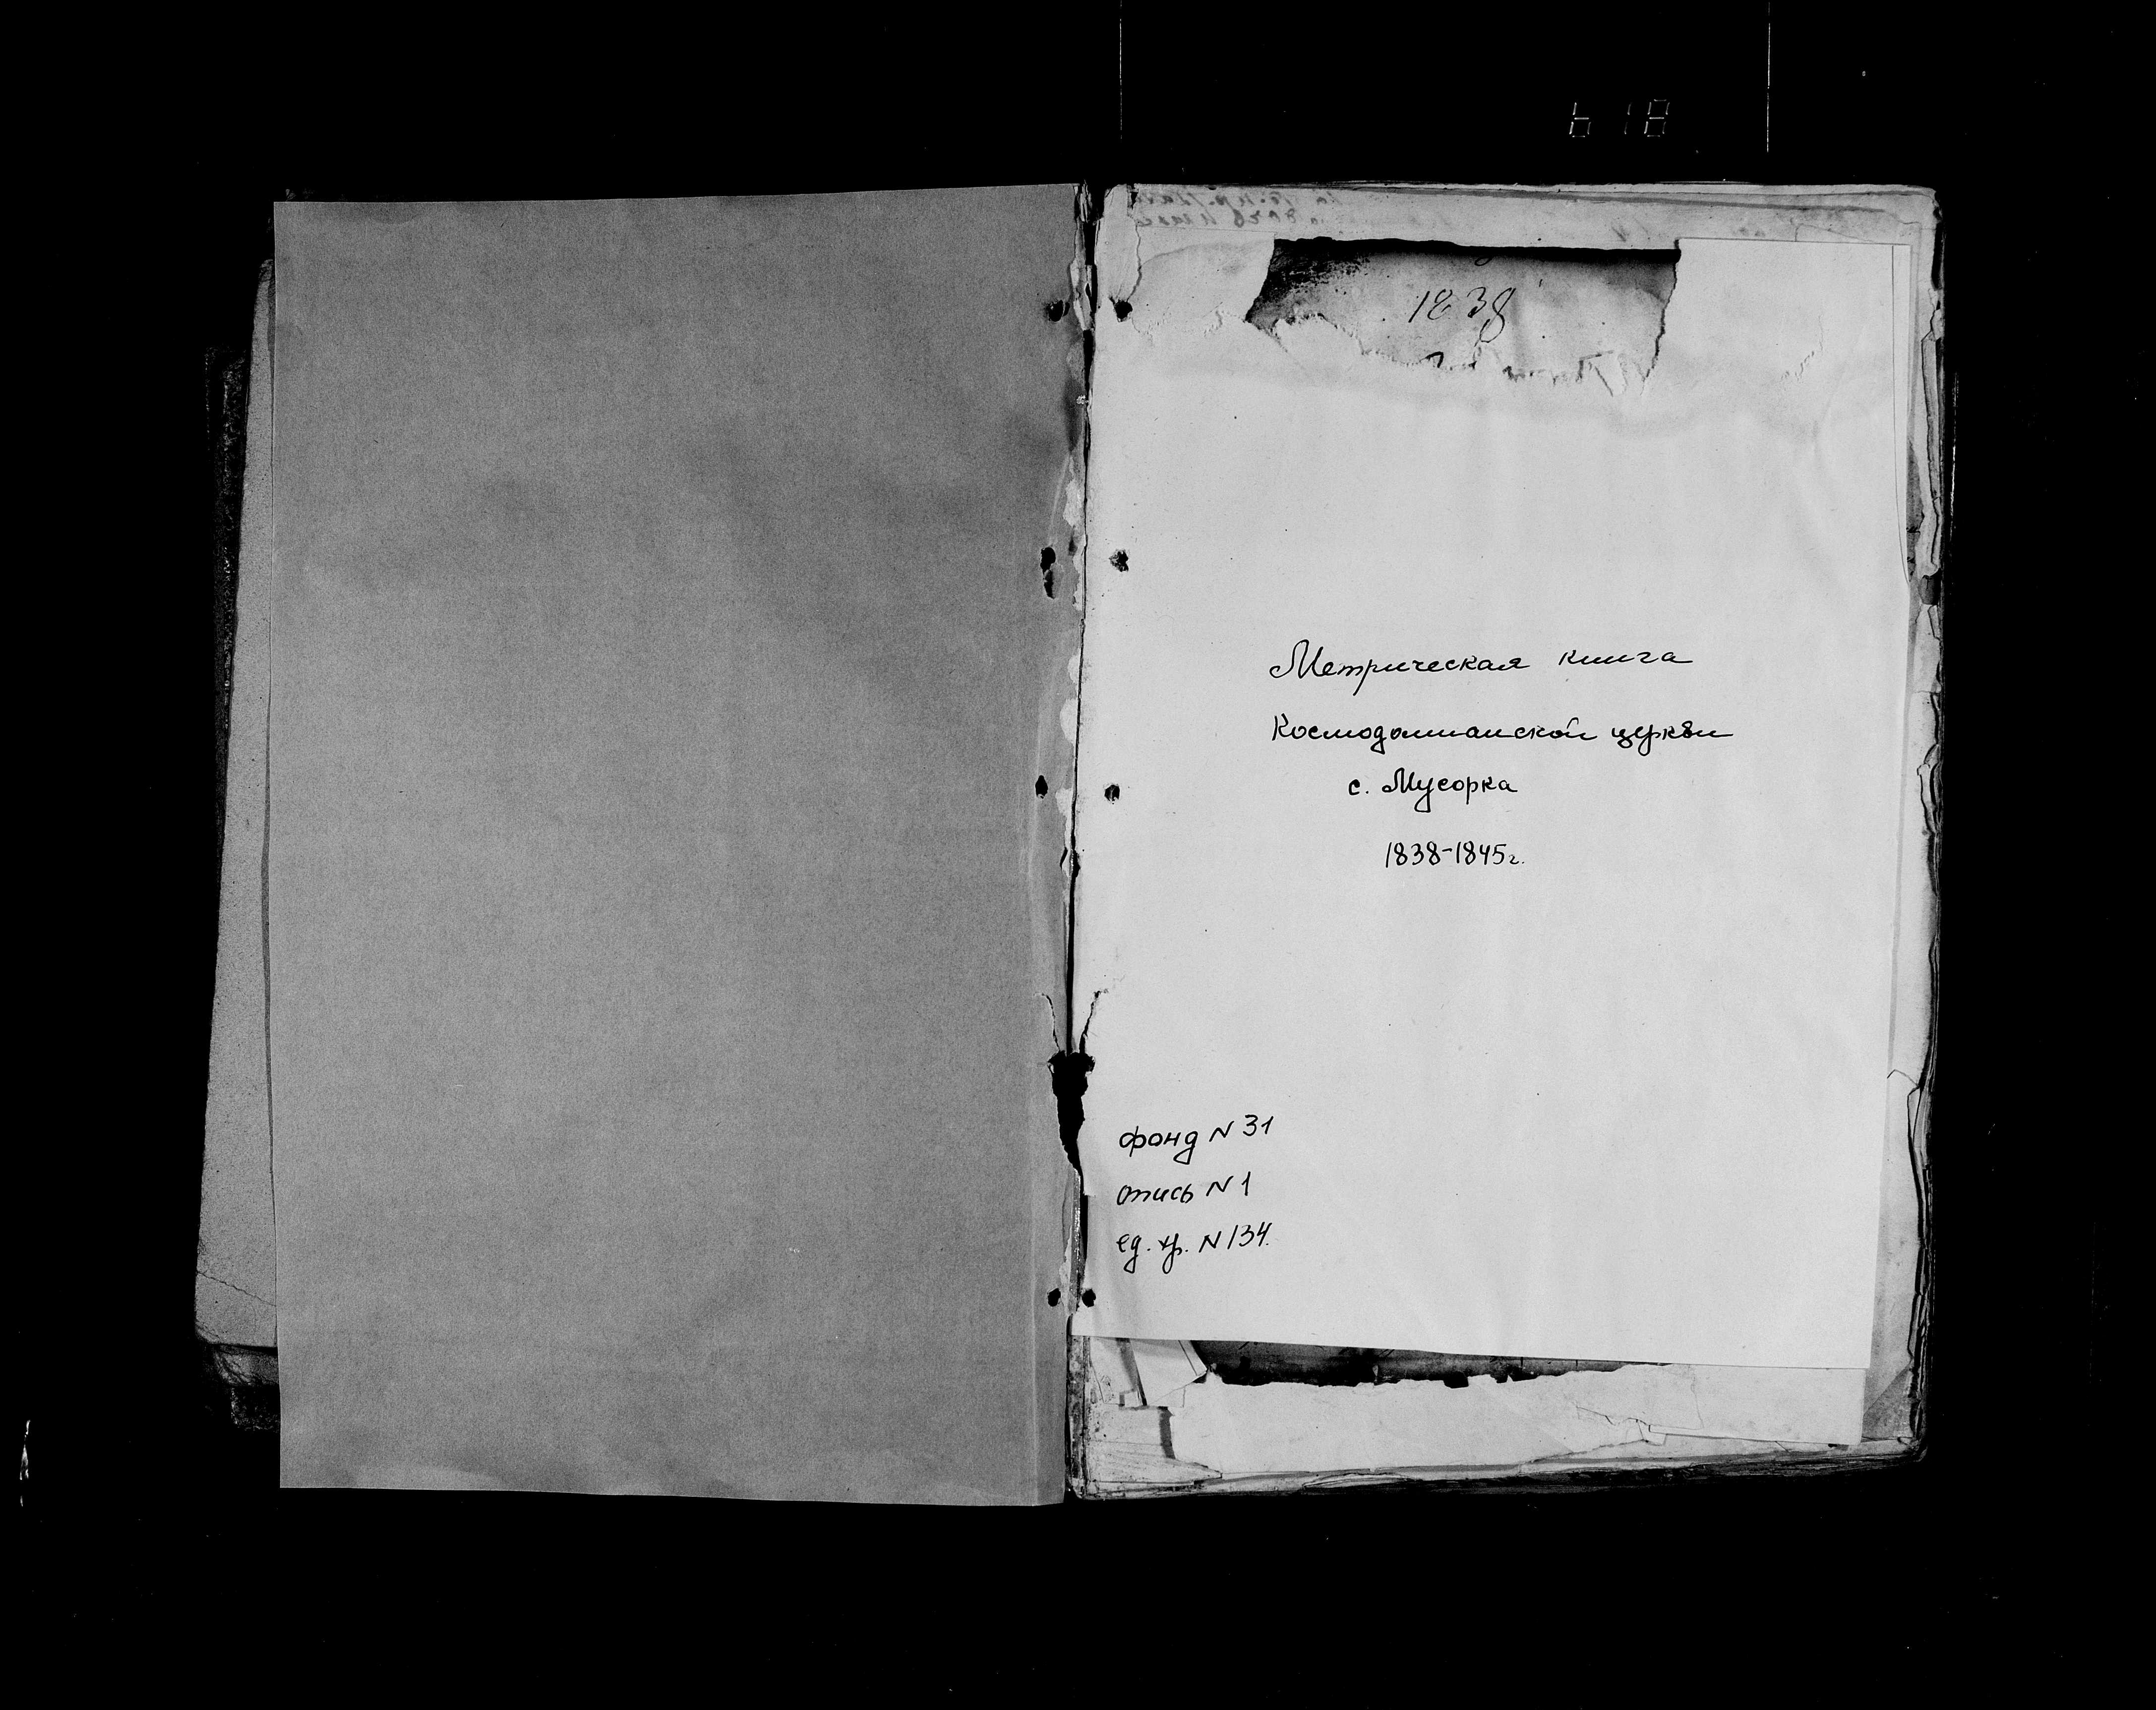 1838
Метрическая книга
Космодамианской церкви
с. Мусорка
1838-1845г.
фонд N 31
опись N 1
ед. хр. N 134.